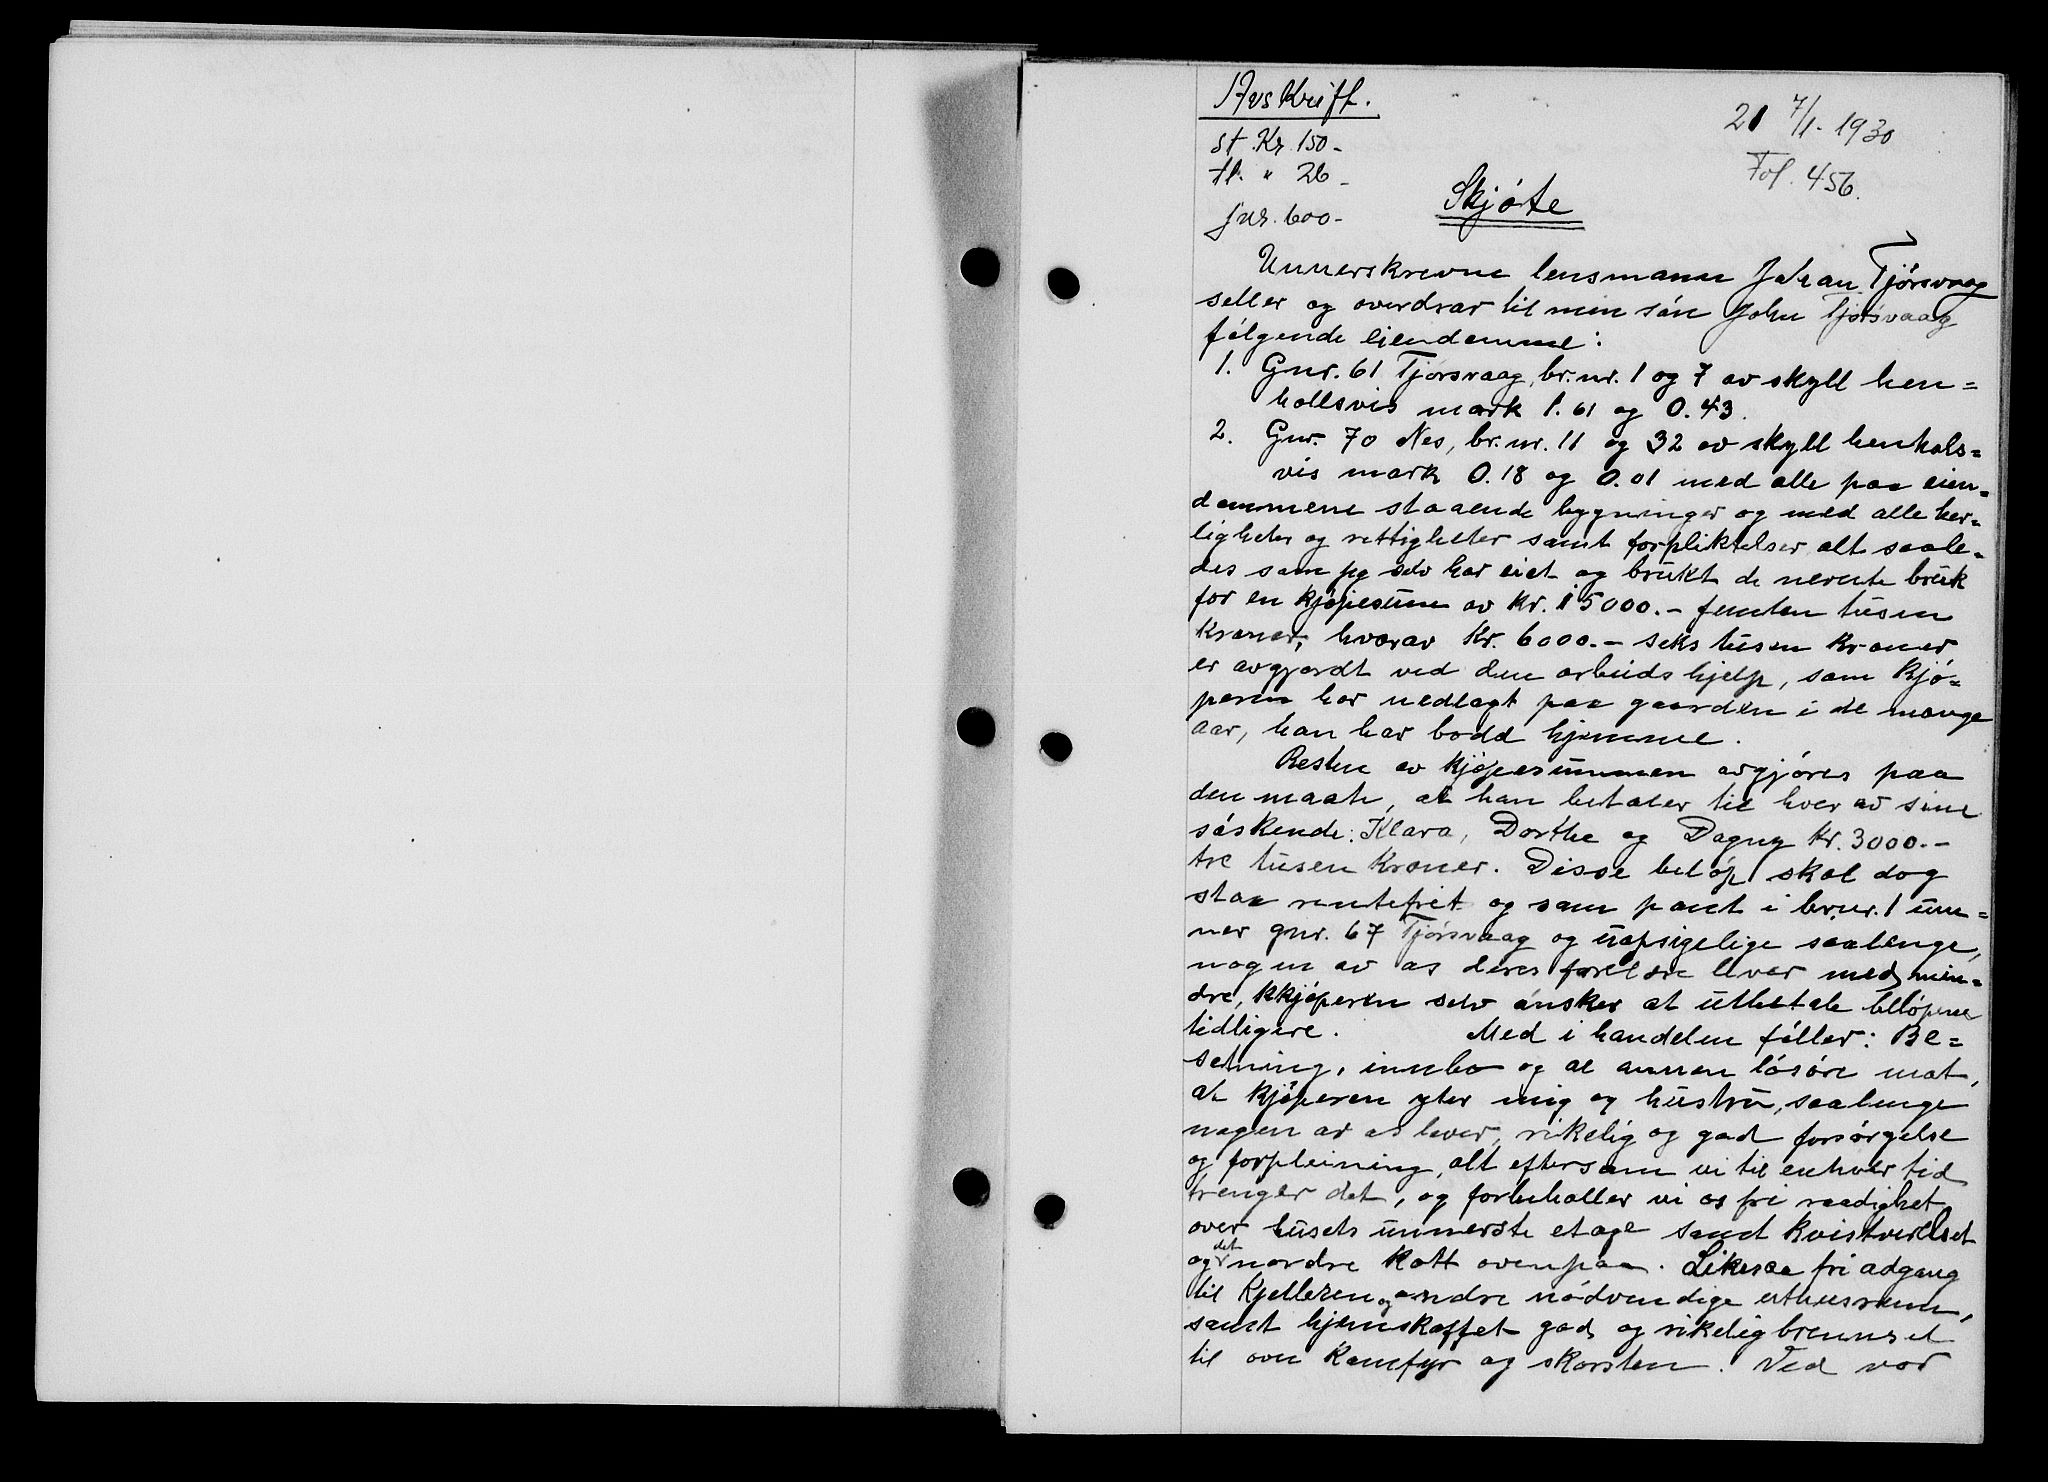 Avskrift.
st. Kr. 150-
tl. " 26-
jur. 600-
21 7/1-1930
Fol. 456.
Skjøte
Unnerskrevne lensmann Johan Tjørsvaag
seller og overdrar til min søn John Tjørsvaag
følgende eiendomme:
1. Gnr. 61 Tjørsvaag, br.nr. 1 og 7 av skyll hen=
hollsvis mark 1.61 og 0.43.
2. Gnr. 70 Nes, br.nr. 11 og 32 av skyll henhols=
vis mark 0.18 og 0.01 med alle paa eien=
dommene staaende bygninger og med alle her=
ligheter og rettigheter samt forpliktelser alt saale=
des som jeg selv har eiet og brukt de nevnte bruk
for en kjøpesum av kr. 15000.- femten tusen
kroner, hvorav kr. 6000.- seks tusen kroner
er avgjordt ved den arbeidshjelp, som kjø=
peren har nedlagt paa gaarden i de mange
aar, han har bodd hjemme.
Resten av kjøpesummen avgjøres paa
den maate, at han betaler til hver av sine
søskende: Klara, Dorthe og Dagny kr. 3000.-
tre tusen kroner. Disse beløp skal dog
staa rentefrit og som pant i br.nr. 1 un=
ner gnr. 67 Tjørsvaag og uopsigelige saalenge,
nogen av os deres foreldre lever med min=
dre, kkjøperen selv ønsker at utbetale beløpene
tidligere. Med i handelen føller: Be=
setning, innbo og al annen løsøre mot,
at kjøperen yter mig og hustru, saalenge
nogen av os lever, rikelig og god forsørgelse
og forpleining, alt eftersom vi til enhver tid
trenger det, og forbeholler vi os fri raadighet
over husets unnerste etage samt kvistverelset
og det nordre kott ovenpaa. Likesaa fri adgang
til kjelleren og andre nødvendige uthusrum,
samt hjemskaffet god og rikelig brensel
til ovn komfyr og skorsten. Ved vor